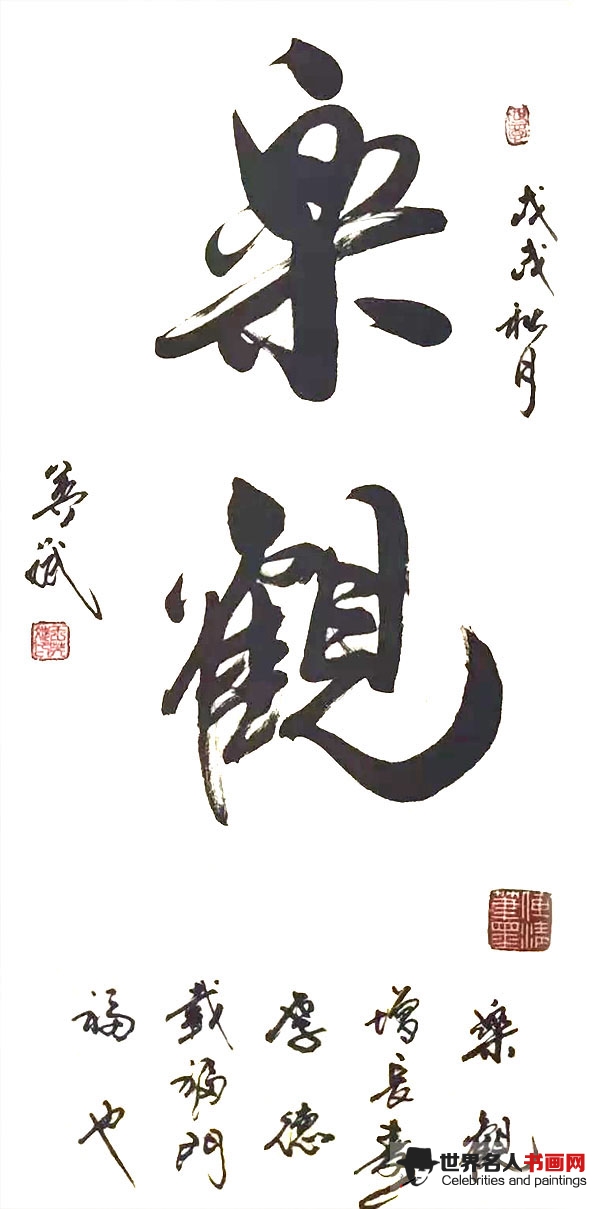 樂觀
戊戌秋月
樂觀
增長壽
厚德
載福門
福也
世界名人书画网
Celebrities and paintings